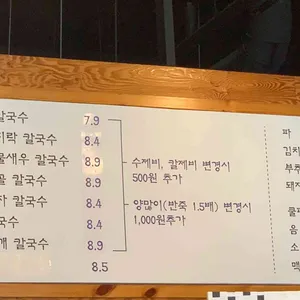 칼국수 7.9
락 칼국수 8.4
새우 칼국수 8.9
칼국수 8.9
칼국수 8.4
8.4
칼국수 8.9
8.5
수제비, 칼제비 변경시
500원 추가
양많이(반죽 1.5배) 변경시
1,000원추가
파
김치
부
돼
클
음
소
맥